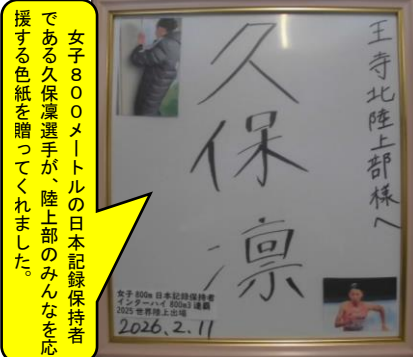 女子800メートルの日本記録保持者
である久保凛選手が、陸上部のみんなを応
援する色紙を贈ってくれました。
王寺北陸上部様へ
久保凛
女子 800m 日本記録保持者
インターハイ 800m3連覇
2025 世界陸上出場
2026.2.11